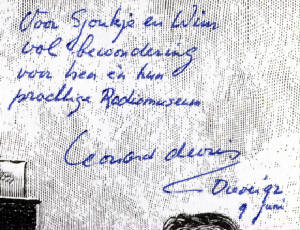 Voor Sjoukje en Wim
vol bewondering
voor hen en hun
prachtige Radiomuseum
Leonard de Vries
9 juni